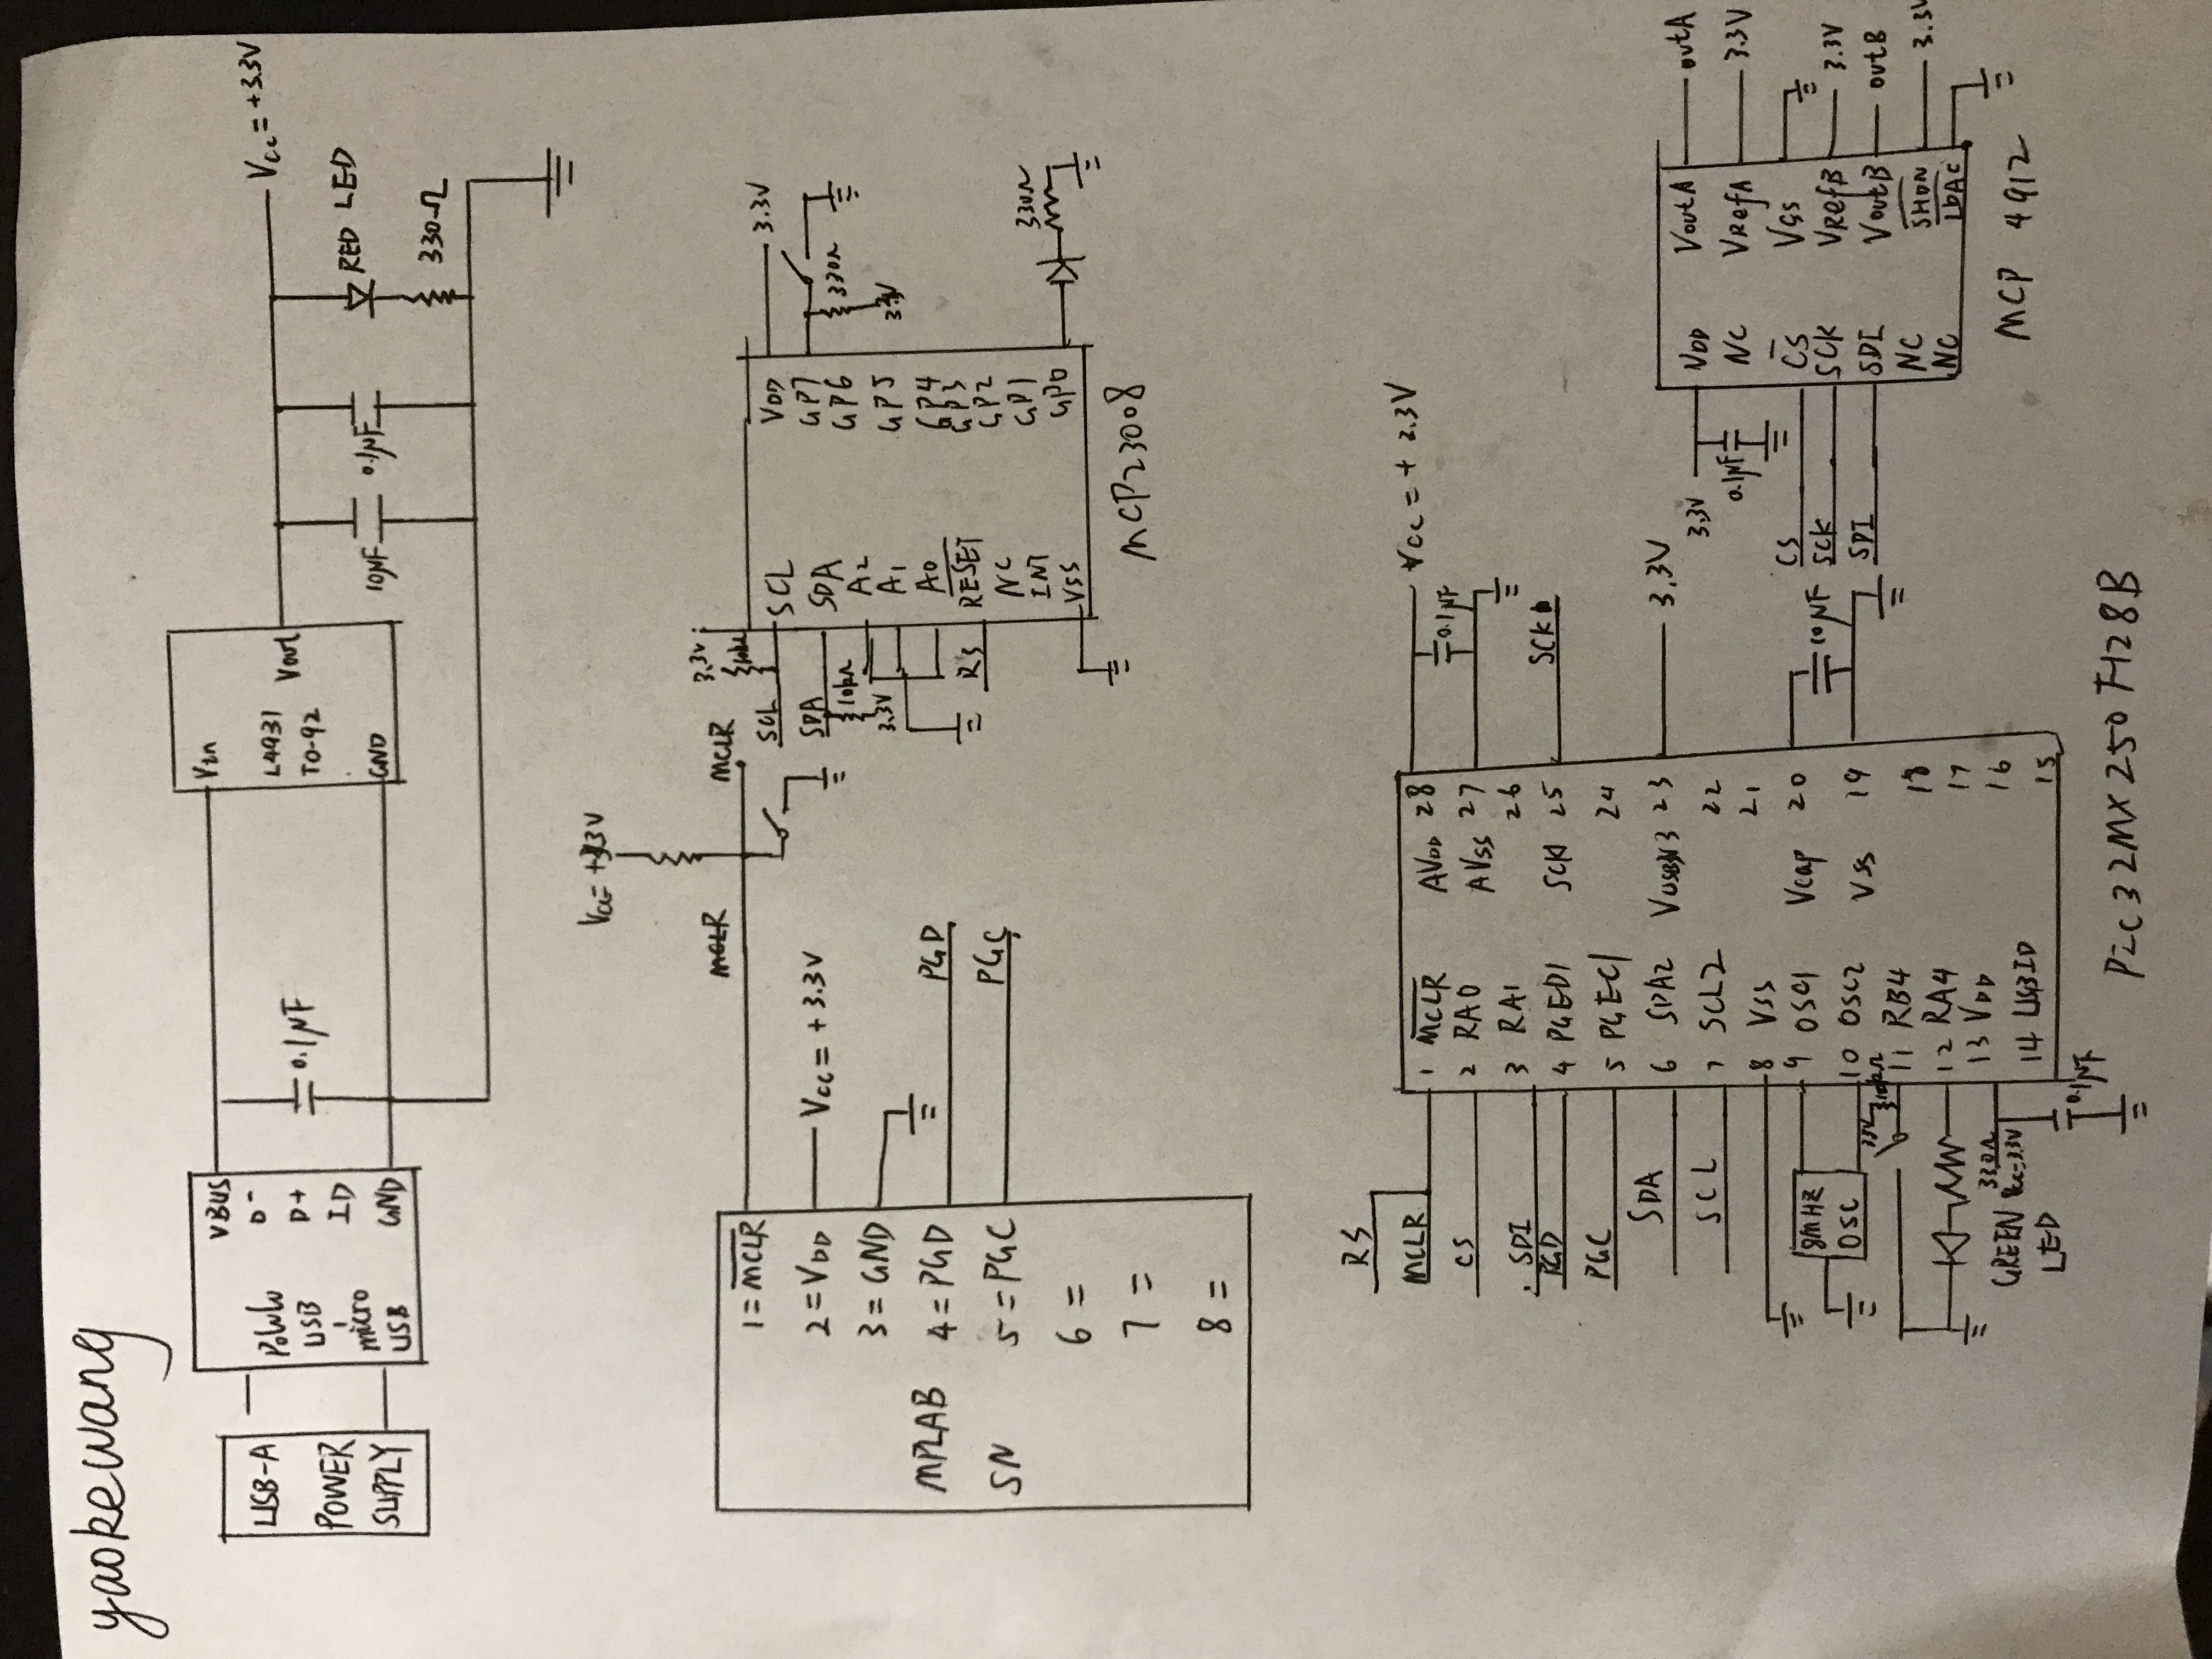 yaokewang
USB-A
POWER
SUPPLY
Pololu
USB
-
micro
USB
VBUS
D-
D+
ID
GND
0.1µF
Vin
L4931
TO-92
Vout
GND
10µF
0.1µF
RED LED
330Ω
Vcc = +3.3V
Vcc = +3.3V
MPLAB
SN
1 = MCLR
2 = VDD
3 = GND
4 = PGD
5 = PGC
6 =
7 =
8 =
MCLR
MCLR
Vcc = +3.3V
PGD
PGC
3.3V
10kΩ
SCL
SDA
10kΩ
3.3V
RS
SCL
SDA
A2
A1
A0
RESET
NC
INT
VSS
VDD
GP7
GP6
GP5
GP4
GP3
GP2
GP1
GP0
3.3V
330Ω
3.3V
330Ω
MCP23008
RS
MCLR
CS
SDI
PGD
PGC
SDA
SCL
8MHZ
OSC
3.3V
10kΩ
330Ω
GREEN
LED
Vcc=3.3V
0.1µF
1 MCLR
2 RA0
3 RA1
4 PGED1
5 PGEC1
6 SDA2
7 SCL2
8 VSS
9 OSC1
10 OSC2
11 RB4
12 RA4
13 VDD
14 USBID
AVDD 28
AVSS 27
26
SCK1 25
24
VUSB3V3 23
22
21
Vcap 20
VSS 19
18
17
16
15
Vcc = + 3.3V
0.1µF
SCK
3.3V
10µF
PIC32MX250F128B
3.3V
0.1µF
CS
SCK
SDI
VDD
NC
CS
SCK
SDI
NC
NC
VoutA
VRefA
VSS
VRefB
VoutB
SHDN
LDAC
outA
3.3V
3.3V
outB
3.3V
MCP 4912